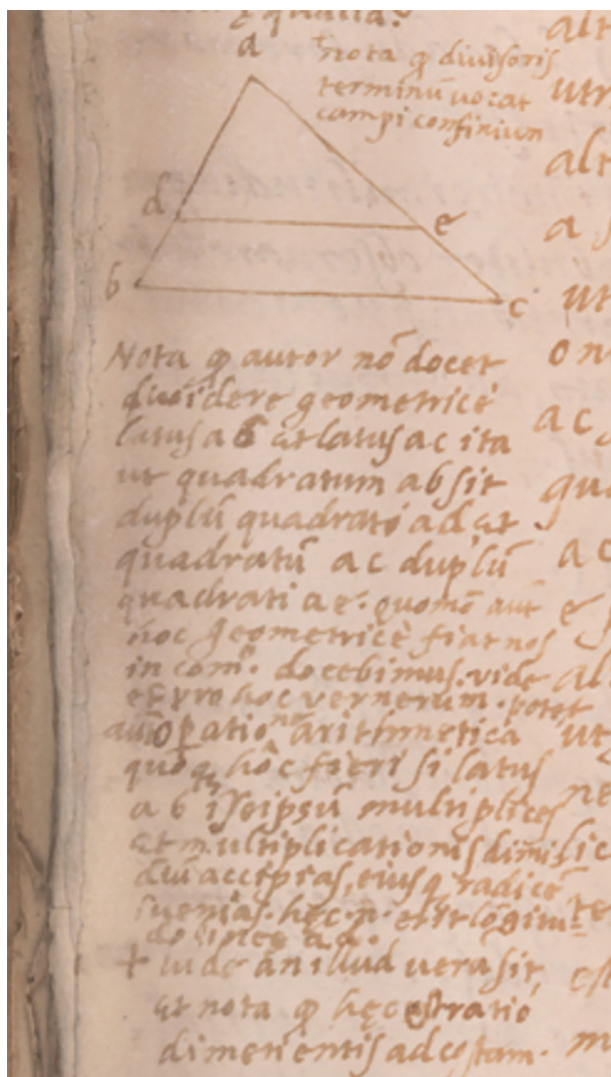 ęqualia.
a
nota ꝙ divisoris
terminū vocat
campi confinium
d
e
b
c
Nota ꝙ autor nō docet
dividere geometricè
latus ab et latus ac ita
ut quadratum ab sit
duplū quadrato ad, et
quadratū ac duplū
quadrati ae. quomō aūt
hoc geometricè fiat nos
in com. docebimus. vide
et pro hoc vernerum. potest
aūt opatione arithmetica
quoq hoc fieri si latus
ab i seipsū multiplices
et multiplicationis dimi
diū accipias, eiusq radicē
invenias. hęc .n. est lōgitu
do lineę ad.
+ vide an illud verū sit,
et nota ꝙ hęc est ratio
dimetientis ad costam.
alt
utr
alt
a
ut
on
ac
qua
ac
e
al
ut
ne
lic
te
es
m